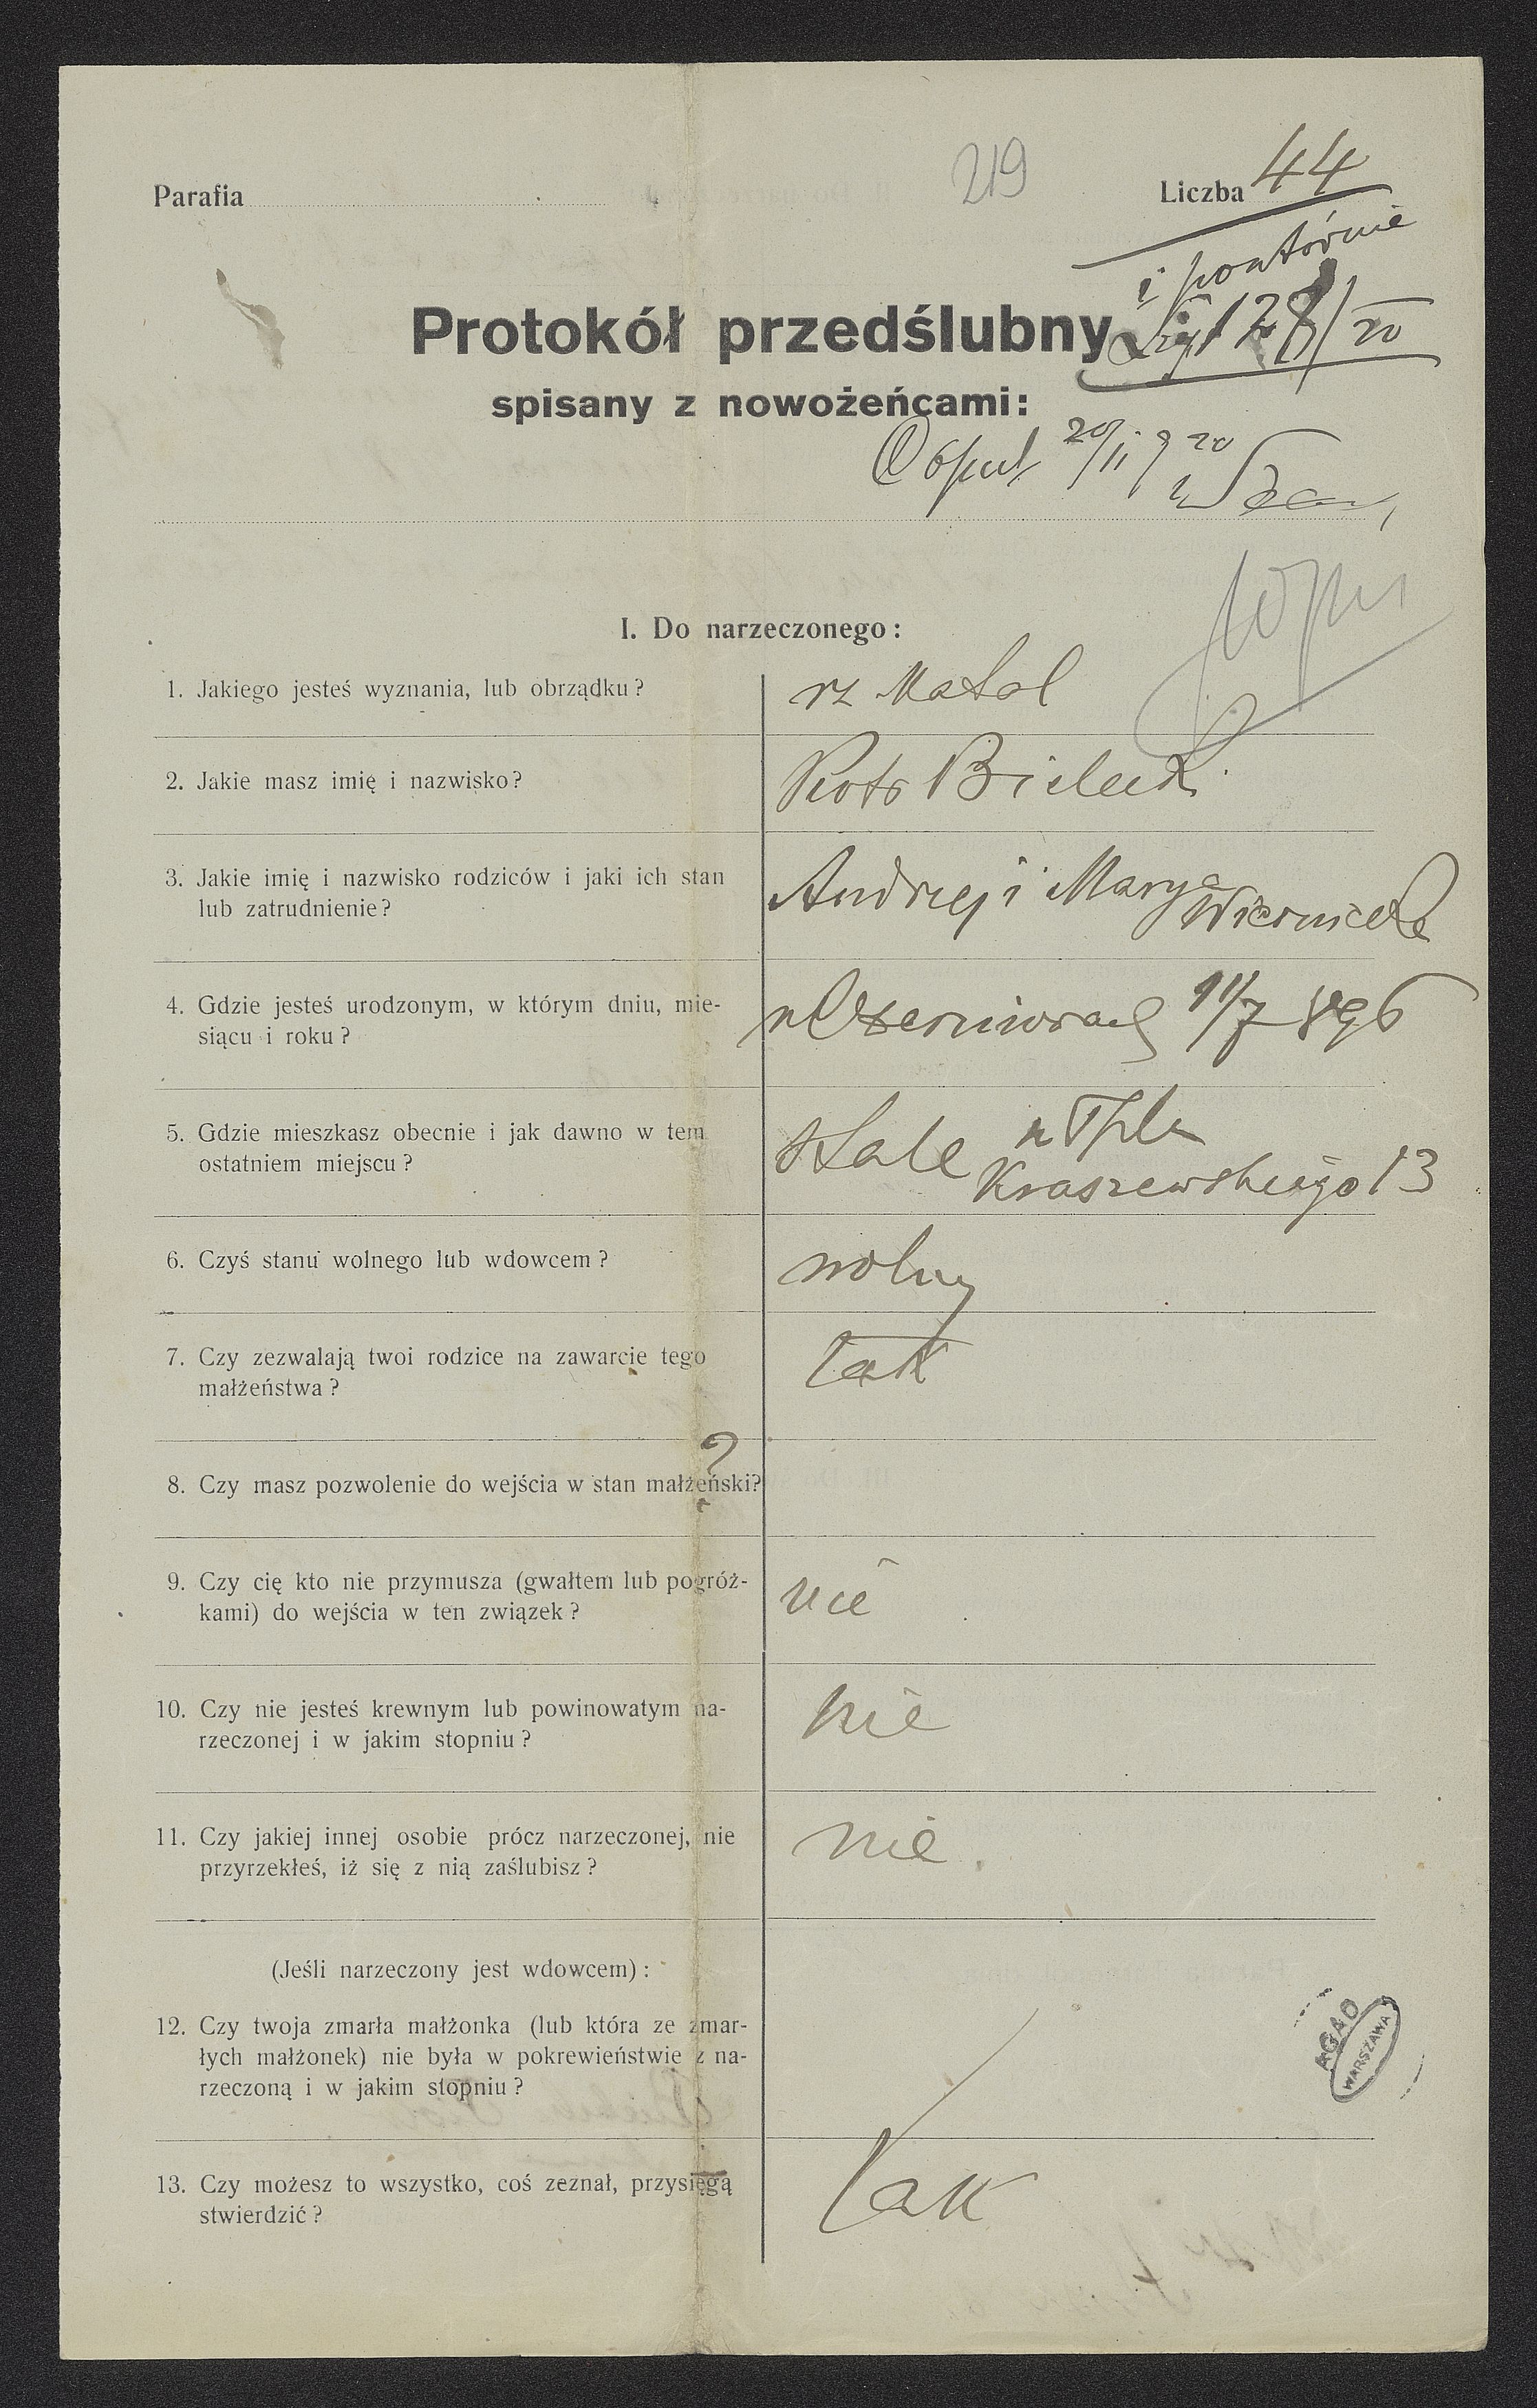 Parafia
219
Liczba 44
i powtórnie
128/20
Protokół przedślubny
spisany z nowożeńcami:
20/II 920
I. Do narzeczonego:
1. Jakiego jesteś wyznania, lub obrządku?
rz Katol
2. Jakie masz imię i nazwisko?
Piotr Bielecki
3. Jakie imię i nazwisko rodziców i jaki ich stan
lub zatrudnienie?
Andrzej i Marya
Wiernicka
4. Gdzie jesteś urodzonym, w którym dniu, mie-
siącu i roku?
896
5. Gdzie mieszkasz obecnie i jak dawno w tem
ostatniem miejscu?
stale w Tplu
Kraszewskiego 13
6. Czyś stanu wolnego lub wdowcem?
wolny
7. Czy zezwalają twoi rodzice na zawarcie tego
małżeństwa?
Tak
?
8. Czy masz pozwolenie do wejścia w stan małżeński?
9. Czy cię kto nie przymusza (gwałtem lub pogróż-
kami) do wejścia w ten związek?
nie
10. Czy nie jesteś krewnym lub powinowatym na-
rzeczonej i w jakim stopniu?
nie
11. Czy jakiej innej osobie prócz narzeczonej, nie
przyrzekłeś, iż się z nią zaślubisz?
nie.
(Jeśli narzeczony jest wdowcem):
12. Czy twoja zmarła małżonka (lub która ze zmar-
łych małżonek) nie była w pokrewieństwie z na-
rzeczoną i w jakim stopniu?
AGAD
WARSZAWA
13. Czy możesz to wszystko, coś zeznał, przysięgą
stwierdzić?
Tak